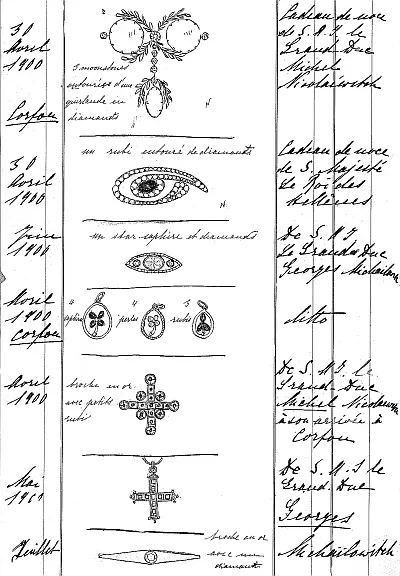 30
Avril
1900
Corfou
3 moonstones
entourées d'une
guirlande en
diamants
Cadeau de noce
de S. A. I. le
Grand Duc
Michel
Nicolaewitch
30
Avril
1900
un rubi entouré de diamants
Cadeau de noce
de S. Majesté
Le Roi des
Hellènes
Juin
1900
un star saphire et diamants
De S. A. I.
Le Grand Duc
Georges Michailowitch
Avril
1900
Corfou
4 saphirs
4 perles
3 rubis
ditto
Avril
1900
broche en or
avec petits
rubis
De S. A. I. le
Grand Duc
Michel Nicolaewitch
à son arrivée à
Corfou
Mai
De S. A. I. le
Grand Duc
Georges
Michailowitch
Juillet
broche en or
avec un
diamant